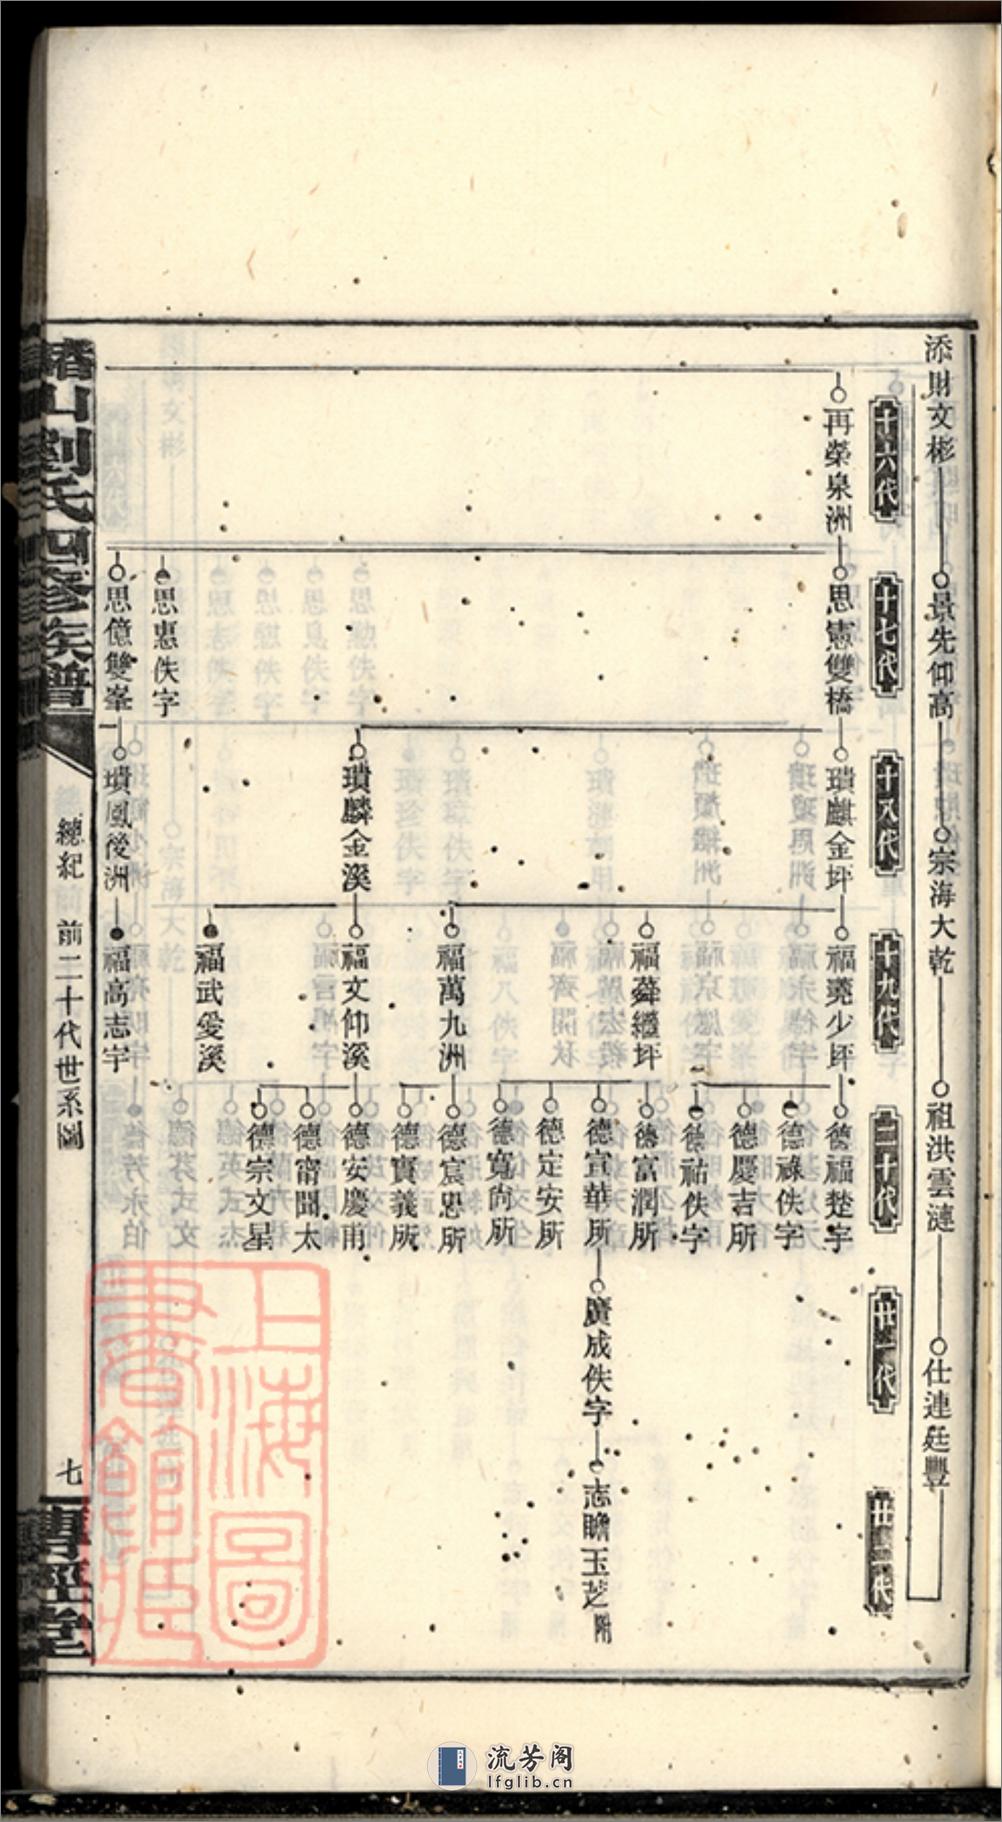 添財文彬
景先仰高
宗海大乾
祖洪雲漣
仕連廷豐
十六代
十七代
十八代
十九代
二十代
廿一代
廿二代
再榮泉洲
思憲雙橋
璝麒金坪
福堯少坪
德福楚宇
德祿佚字
德慶吉所
德祐佚字
福舜繼坪
德富潤所
德宣華所
廣成佚字
志瞻玉芝
附
德定安所
德寬尚所
福萬九洲
德宸思所
德實義所
璝麟金溪
福文仰溪
德安慶甫
德甯聞太
德宗文星
福武愛溪
思惠佚字
思億雙峯
璝鳳後洲
福高志宇
劉氏四修族譜
總紀
前二十代世系圖
七
傳經堂
上海圖書館藏
流芳阁
lfglib.cn